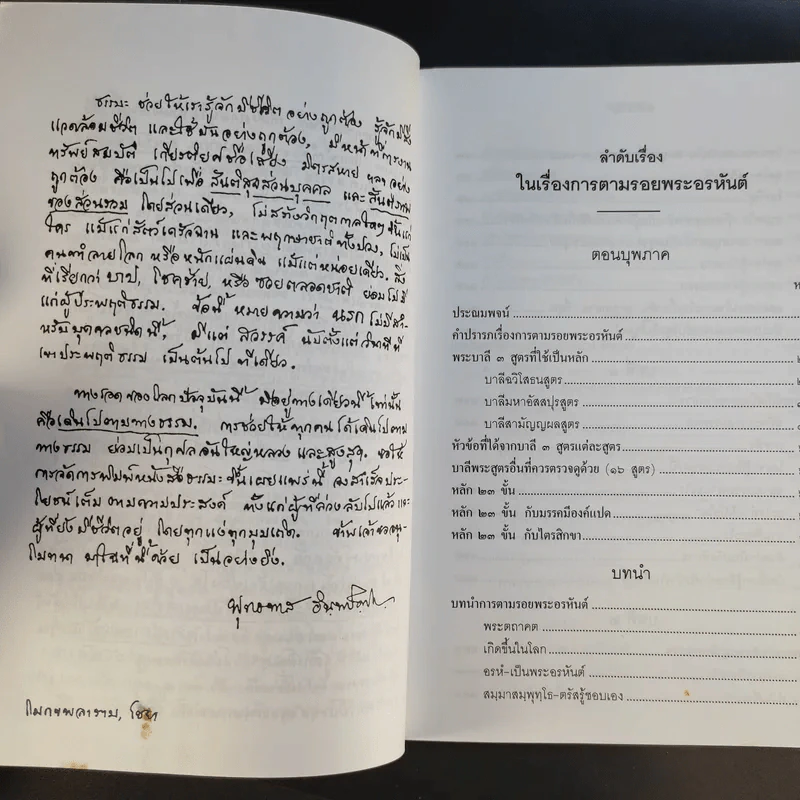 ธรรมะ ช่วยให้เรารู้จักมีชีวิตอย่างถูกต้อง รู้จักมีสิ่ง
แวดล้อมชีวิต และใช้มันอย่างถูกต้อง, มีหน้าที่การงาน
ทรัพย์สมบัติ เกียรติยศชื่อเสียง มิตรสหาย ฯลฯ อย่าง
ถูกต้อง คือเป็นไปเพื่อ สันติสุขส่วนบุคคล และสันติภาพ
ของส่วนรวม โดยส่วนเดียว, ไม่สร้างวิกฤตกาลใดๆ ขึ้นแก่
ใคร แม้แก่สัตว์เดรัจฉาน และพฤกษาชาติทั้งปวง, ไม่เป็น
คนทำลายโลก หรือหนักแผ่นดิน แม้แต่หน่อยเดียว. สิ่ง
ที่เรียกว่า บาป, โชคร้าย, หรือ ซวยตลอดชาติ ย่อมไม่มี
แก่ผู้ประพฤติธรรม. ข้อนี้ หมายความว่า นรก ไม่มีสำ-
หรับบุคคลชนิดนี้, มีแต่ สวรรค์ นับตั้งแต่วินาทีที่
เขาประพฤติธรรม เป็นต้นไป ทีเดียว.
ทางรอดของโลกปัจจุบันนี้ มีอยู่ทางเดียวนี้ เท่านั้น
คือเดินไปตามทางธรรม. การช่วยให้ทุกคนได้เดินไปตาม
ทางธรรม ย่อมเป็นกุศลอันใหญ่หลวง และสูงสุด. ขอให้
การจัดการพิมพ์หนังสือธรรมะขึ้นเผยแพร่นี้ จงสำเร็จประ-
โยชน์เต็มตามความประสงค์ ทั้งแก่ผู้ที่ล่วงลับไปแล้ว และ
ผู้ที่ยังมีชีวิตอยู่ โดยทุกแง่ทุกมุมเถิด. ข้าพเจ้าขออนุ-
โมทนา มาในที่นี้ด้วย เป็นอย่างยิ่ง.
พุทธทาส อินทปัญโญ
โมกขพลาราม, ไชยา
ลำดับเรื่อง
ในเรื่องการตามรอยพระอรหันต์
ตอนบุพภาค
ประณมพจน์
คำปรารภเรื่องการตามรอยพระอรหันต์
พระบาลี ๓ สูตรที่ใช้เป็นหลัก
บาลีฉวิโสธนสูตร
บาลีมหาอัสสปุรสูตร
บาลีสามัญญผลสูตร
หัวข้อที่ได้จากบาลี ๓ สูตรแต่ละสูตร
บาลีพระสูตรอื่นที่ควรตรวจดูด้วย (๑๖ สูตร)
หลัก ๒๓ ขั้น
หลัก ๒๓ ขั้น กับมรรคมีองค์แปด
หลัก ๒๓ ขั้น กับไตรสิกขา
บทนำ
บทนำการตามรอยพระอรหันต์
พระตถาคต
เกิดขึ้นในโลก
อรหํ-เป็นพระอรหันต์
สมฺมาสมฺพุทฺโธ-ตรัสรู้ชอบเอง